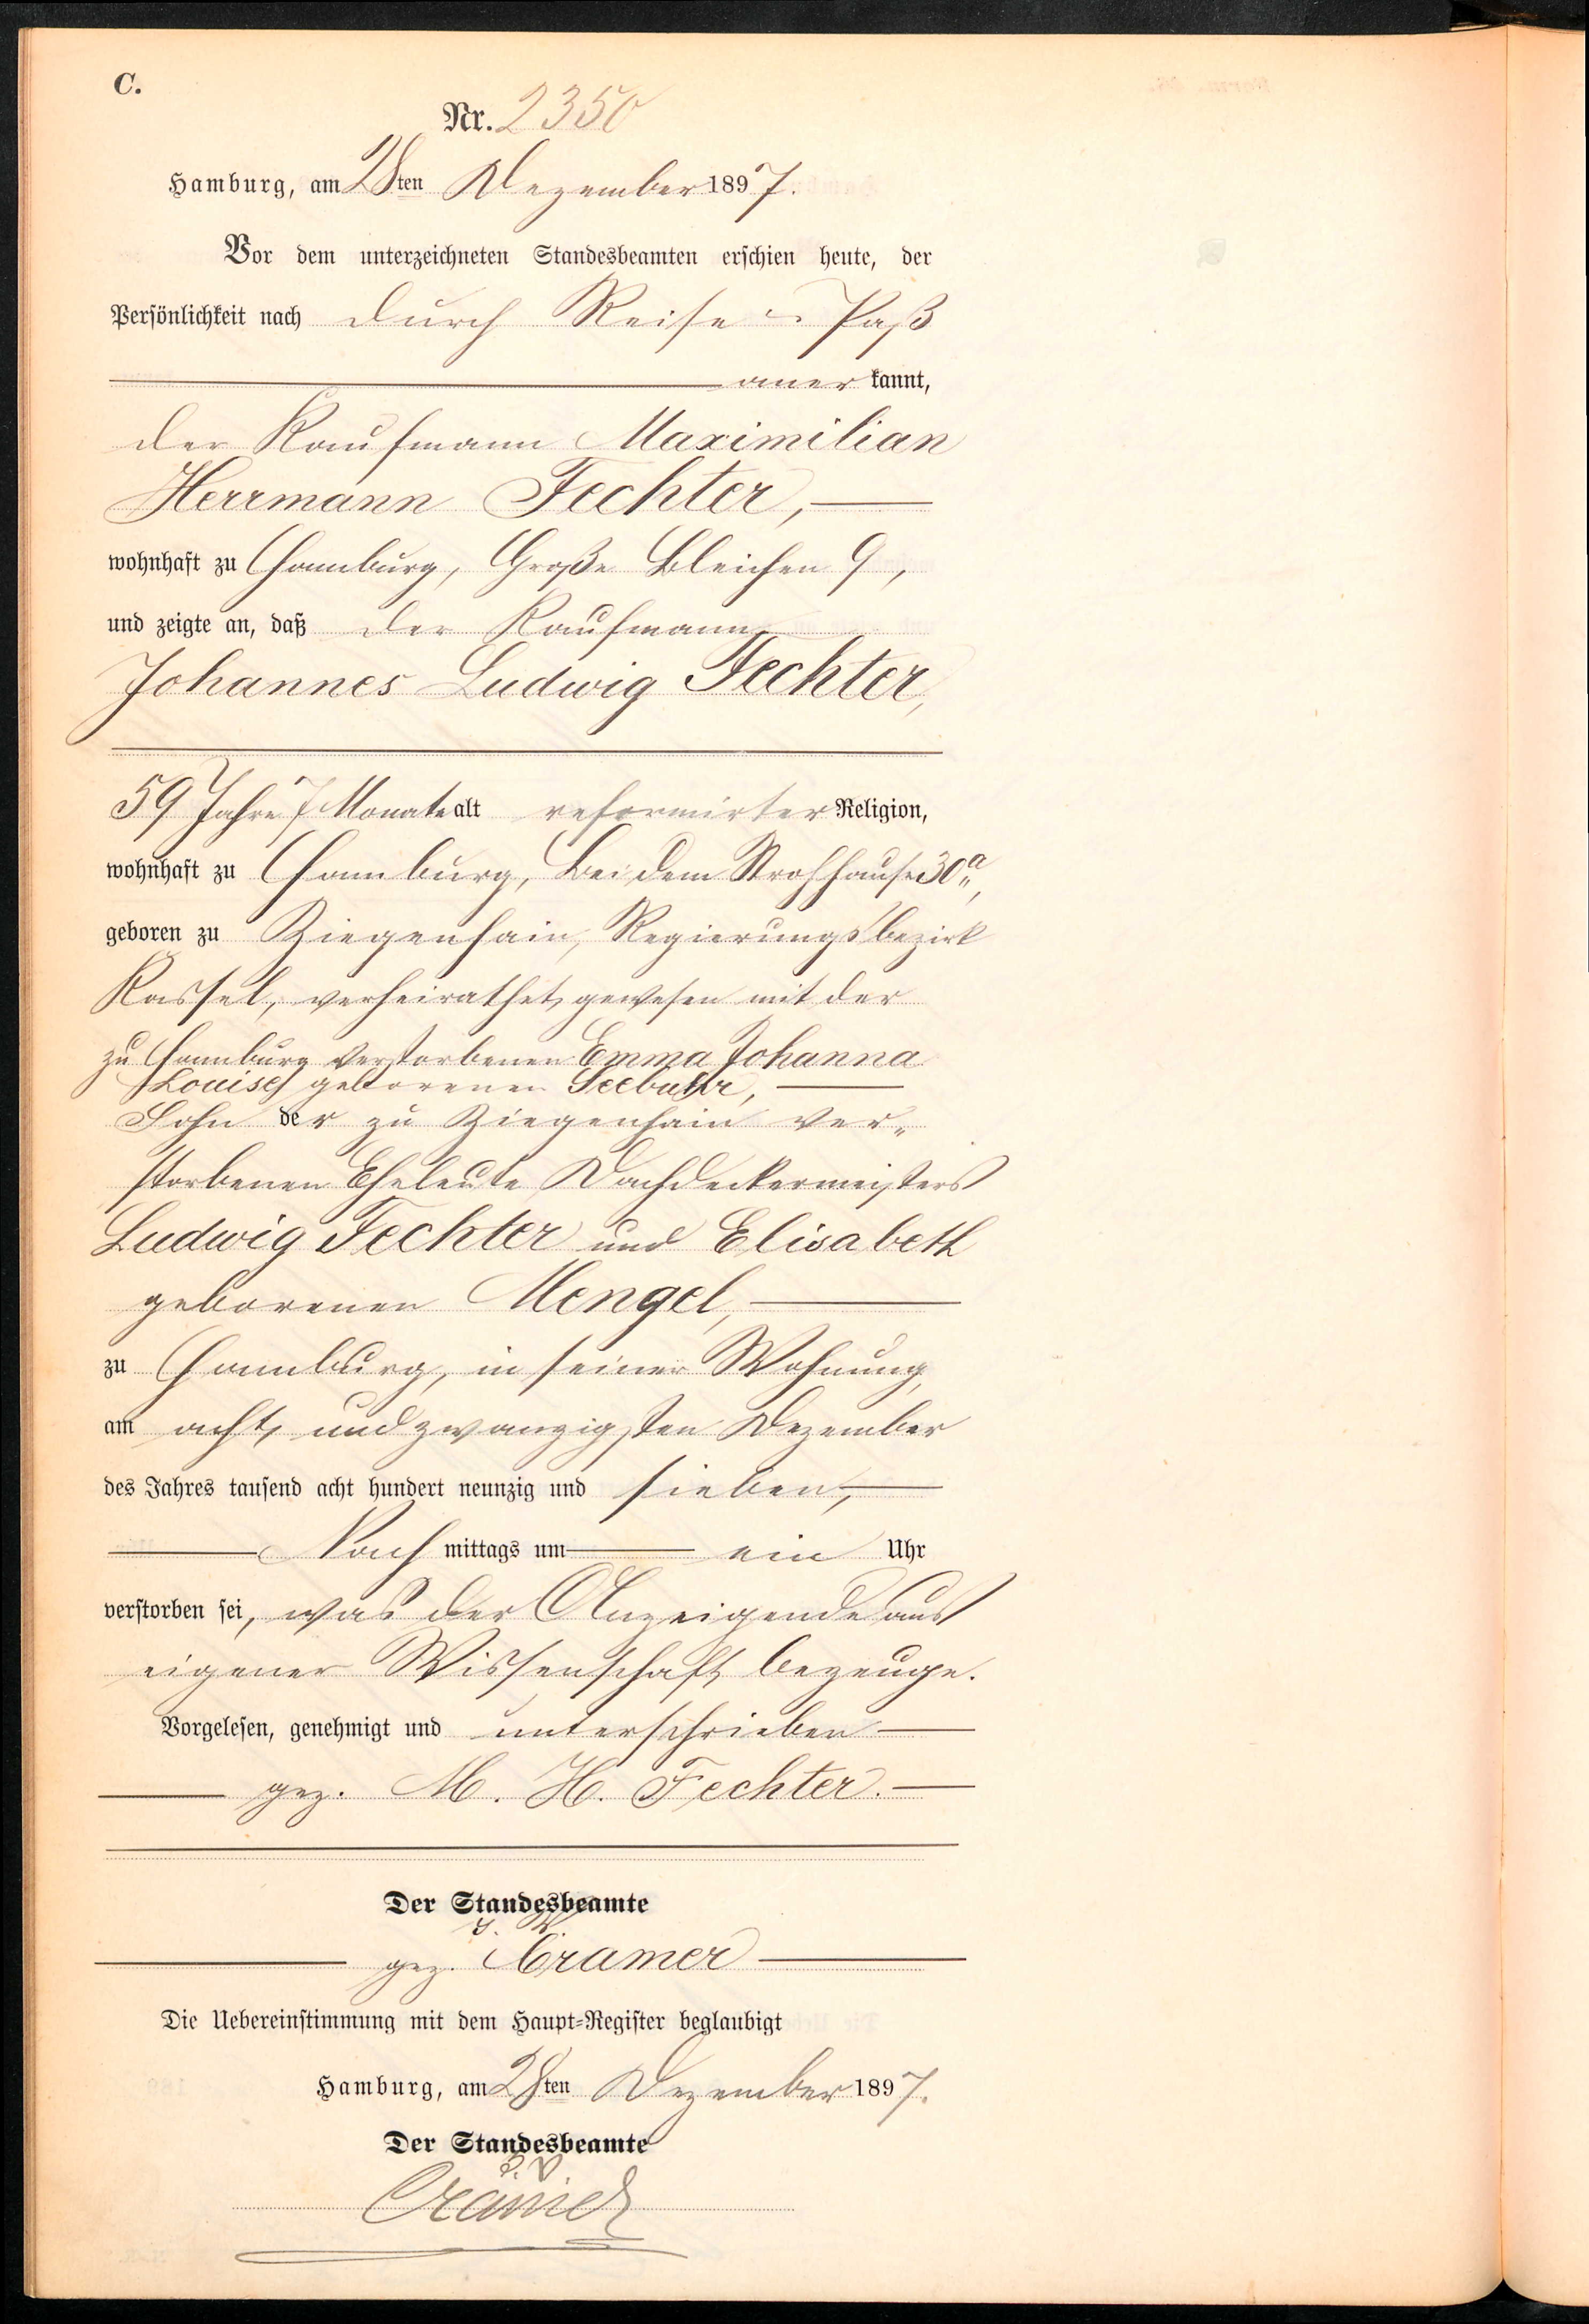 C.
Nr. 2350
Hamburg, am 28ten Dezember 1897.
Vor dem unterzeichneten Standesbeamten erschien heute, der
Persönlichkeit nach durch Reise-Paß
anerkannt,
der Kaufmann Maximilian
Herrmann Fechter,
wohnhaft zu Hamburg, Große Bleichen 9,
und zeigte an, daß der Kaufmann
Johannes Ludwig Fechter,
59 Jahre 7 Monate alt reformirter Religion,
wohnhaft zu Hamburg, Bei dem Strohhause 30a,
geboren zu Ziegenhain, Regierungsbezirk
Kassel, verheirathet gewesen mit der
zu Hamburg verstorbenen Emma Johanna
Louise geborenen Seebuhr,
Sohn der zu Ziegenhain ver-
storbenen Eheleute Dachdeckermeisters
Ludwig Fechter und Elisabeth
geborenen Mengel,
zu Hamburg, in seiner Wohnung,
am acht und zwanzigsten Dezember
des Jahres tausend acht hundert neunzig und sieben,
Nachmittags um ein Uhr
verstorben sei, was der Anzeigende aus
eigener Wissenschaft bezeuge.
Vorgelesen, genehmigt und unterschrieben
gez. M. H. Fechter.
Der Standesbeamte
J. V.
gez. Cramer
Die Uebereinstimmung mit dem Haupt-Register beglaubigt
Hamburg, am 28ten Dezember 1897.
Der Standesbeamte
J. V.
Cramer